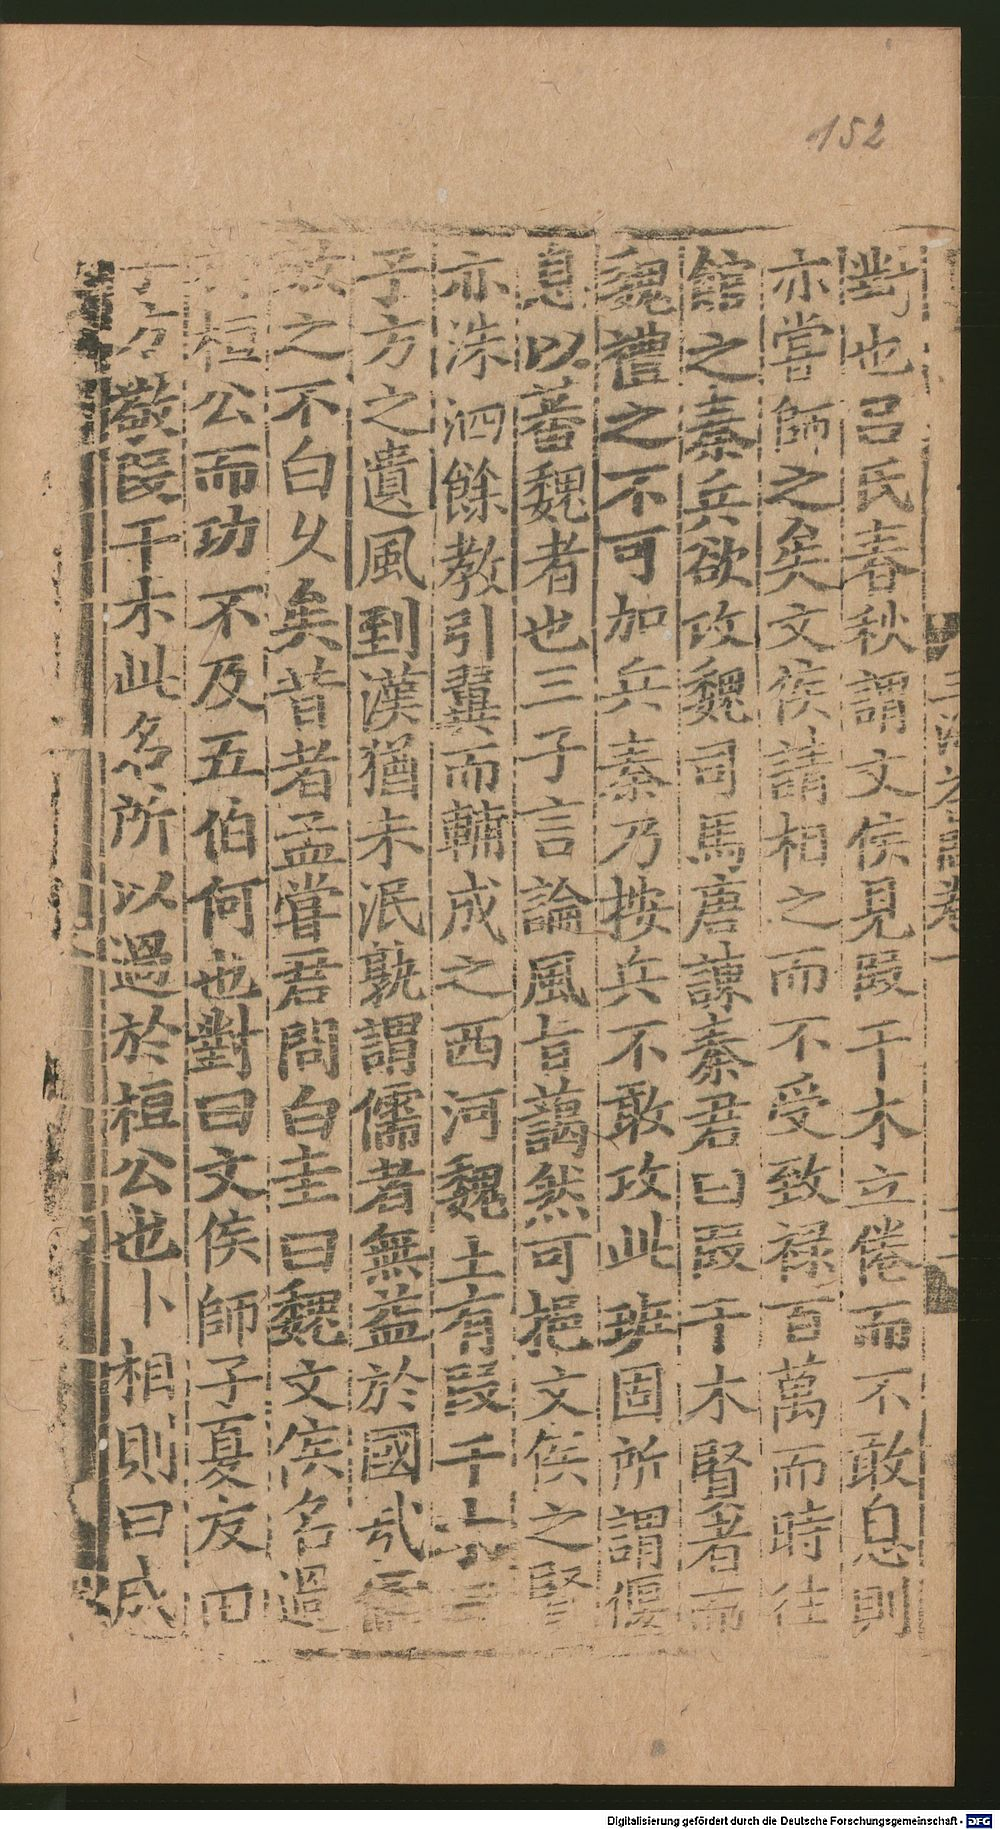 152
對也吕氏春秋謂文侯見叚干木立倦而不敢息則
亦嘗師之矣文侯請相之而不受致禄百萬而時往
館之秦兵欲攻魏司馬唐諫秦君曰叚干木賢者而
魏禮之不可加兵秦乃按兵不敢攻此班固所謂偃
息以蕃魏者也三子言論風旨藹然可挹文侯之賢
亦洙泗餘教引翼而輔成之西河魏土有叚干木三
子方之遺風到漢猶未泯孰謂儒者無益於國哉
故之不白乆矣昔者孟嘗君問白圭曰魏文侯名過
桓公而功不及五伯何也對曰文侯師子夏友田
子方敬叚干木此名所以過於桓公也卜相則曰成
Digitalisierung gefördert durch die Deutsche Forschungsgemeinschaft - DFG